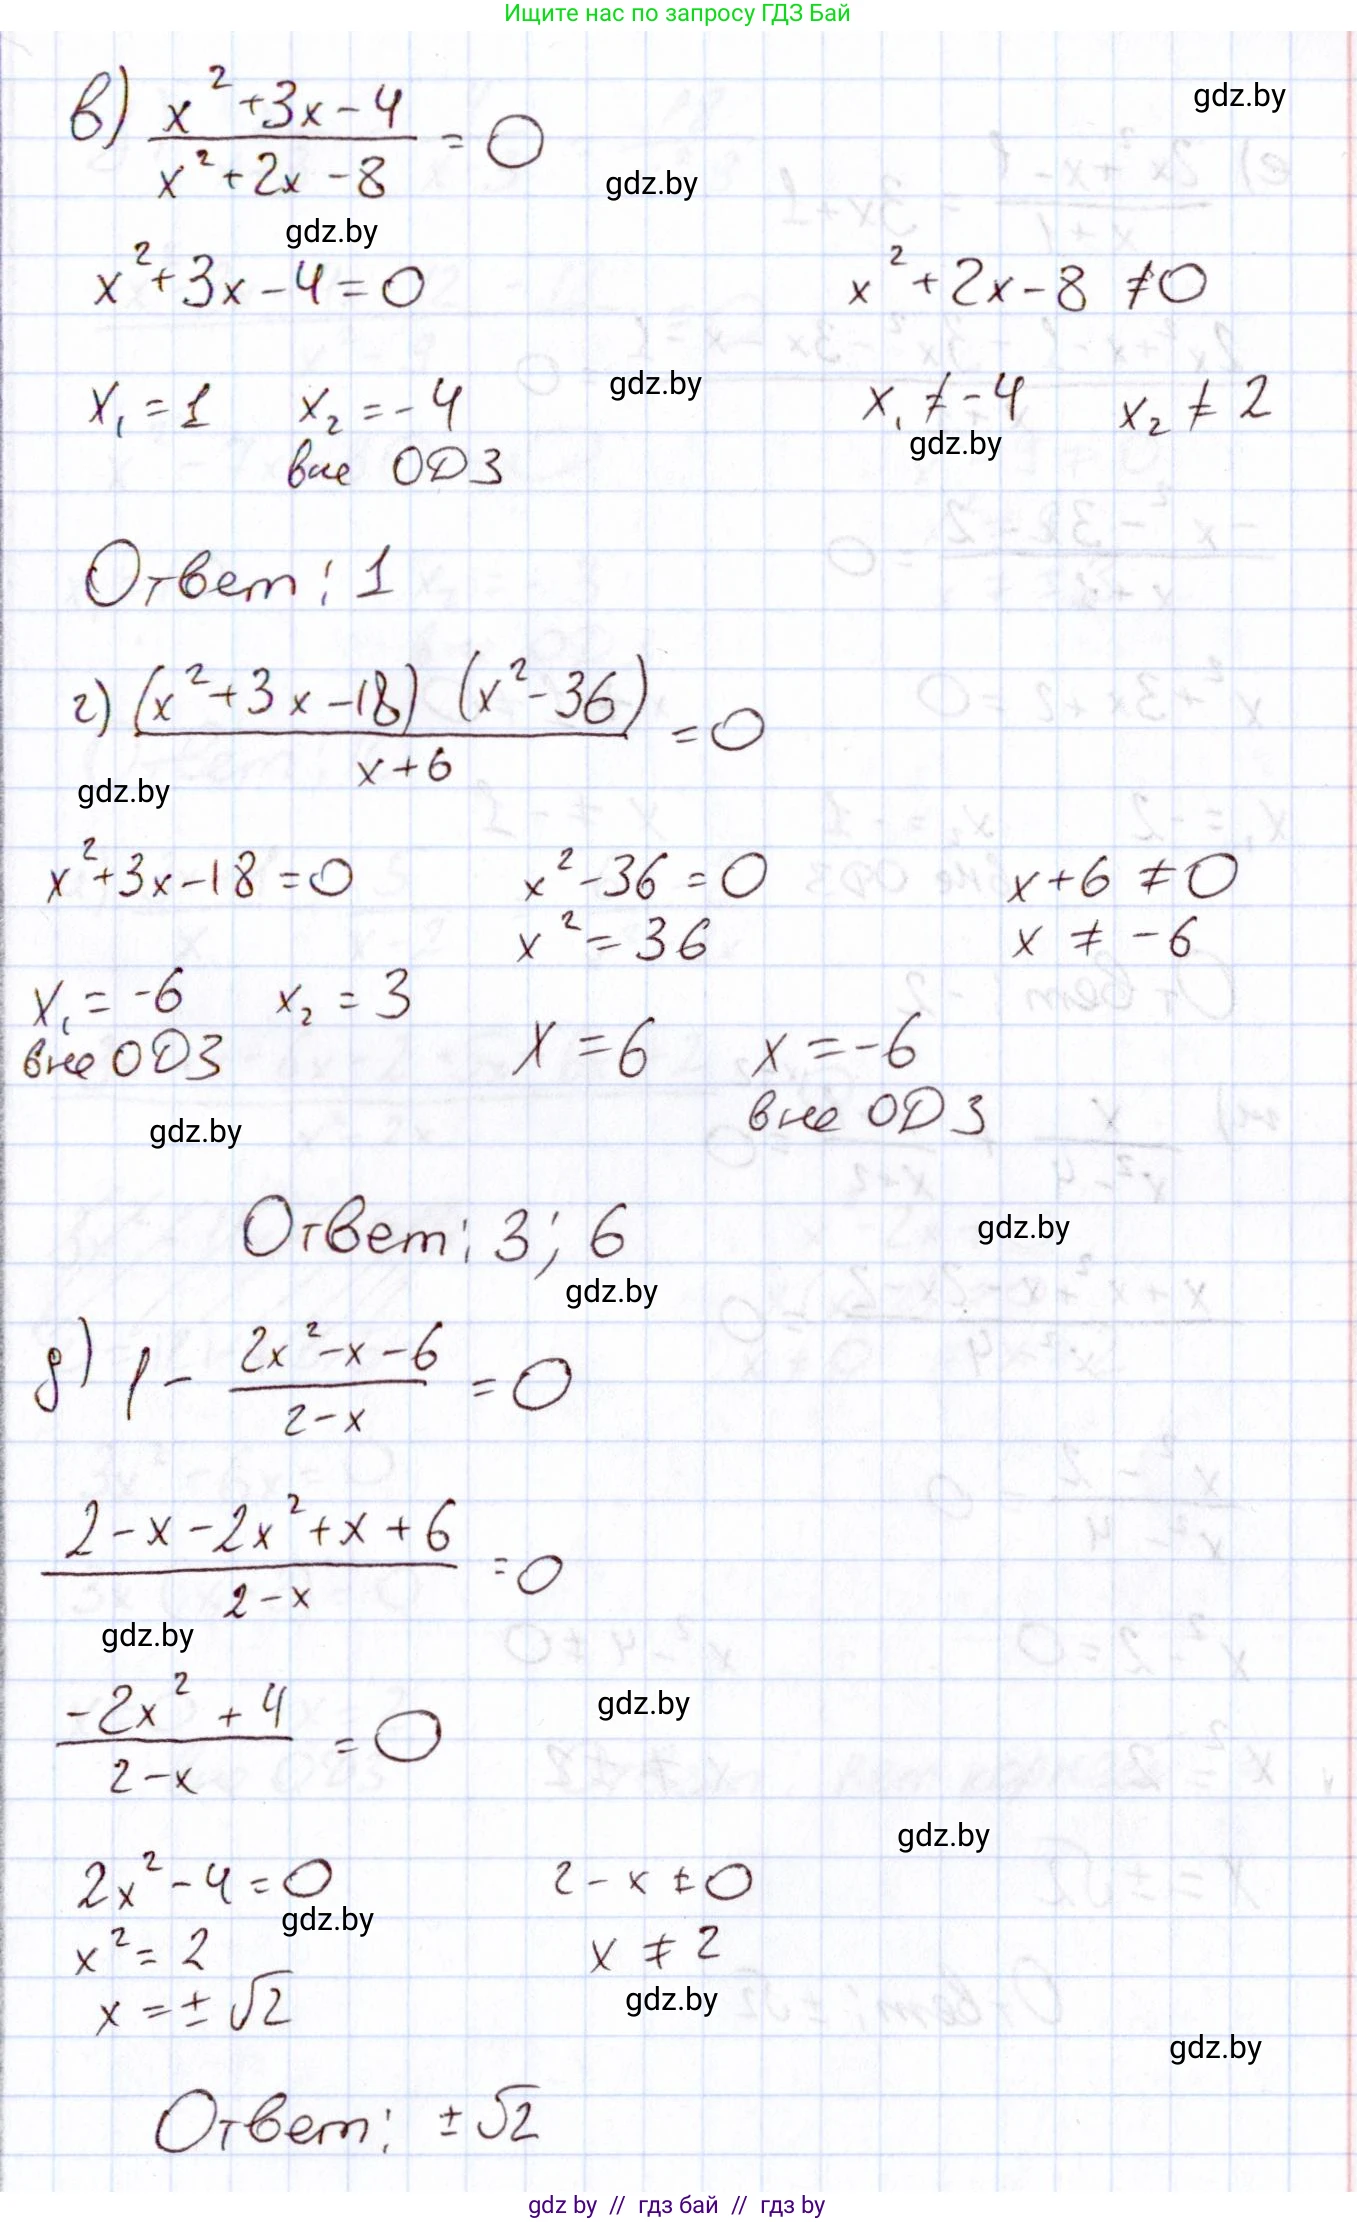 Ищите нас по запросу ГДЗ Бай
gdz.by
в) (x² + 3x - 4) / (x² + 2x - 8) = 0
gdz.by
gdz.by
x² + 3x - 4 = 0    x² + 2x - 8 ≠ 0
gdz.by
x₁ = 1    x₂ = -4    x₁ ≠ -4    x₂ ≠ 2
gdz.by
вне ОДЗ
Ответ: 1
г) (x² + 3x - 18) (x² - 36) / (x + 6) = 0
gdz.by
x² + 3x - 18 = 0    x² - 36 = 0    x + 6 ≠ 0
x² = 36    x ≠ -6
x₁ = -6    x₂ = 3
x = 6    x = -6
вне ОДЗ
вне ОДЗ
gdz.by
Ответ: 3; 6
gdz.by
gdz.by
д) 1 - (2x² - x - 6) / (2 - x) = 0
(2 - x - 2x² + x + 6) / (2 - x) = 0
gdz.by
(-2x² + 4) / (2 - x) = 0
gdz.by
gdz.by
2x² - 4 = 0    2 - x ≠ 0
gdz.by
x² = 2    x ≠ 2
x = ± √2
gdz.by
gdz.by
Ответ: ± √2
gdz by // гдз бай // гдз by